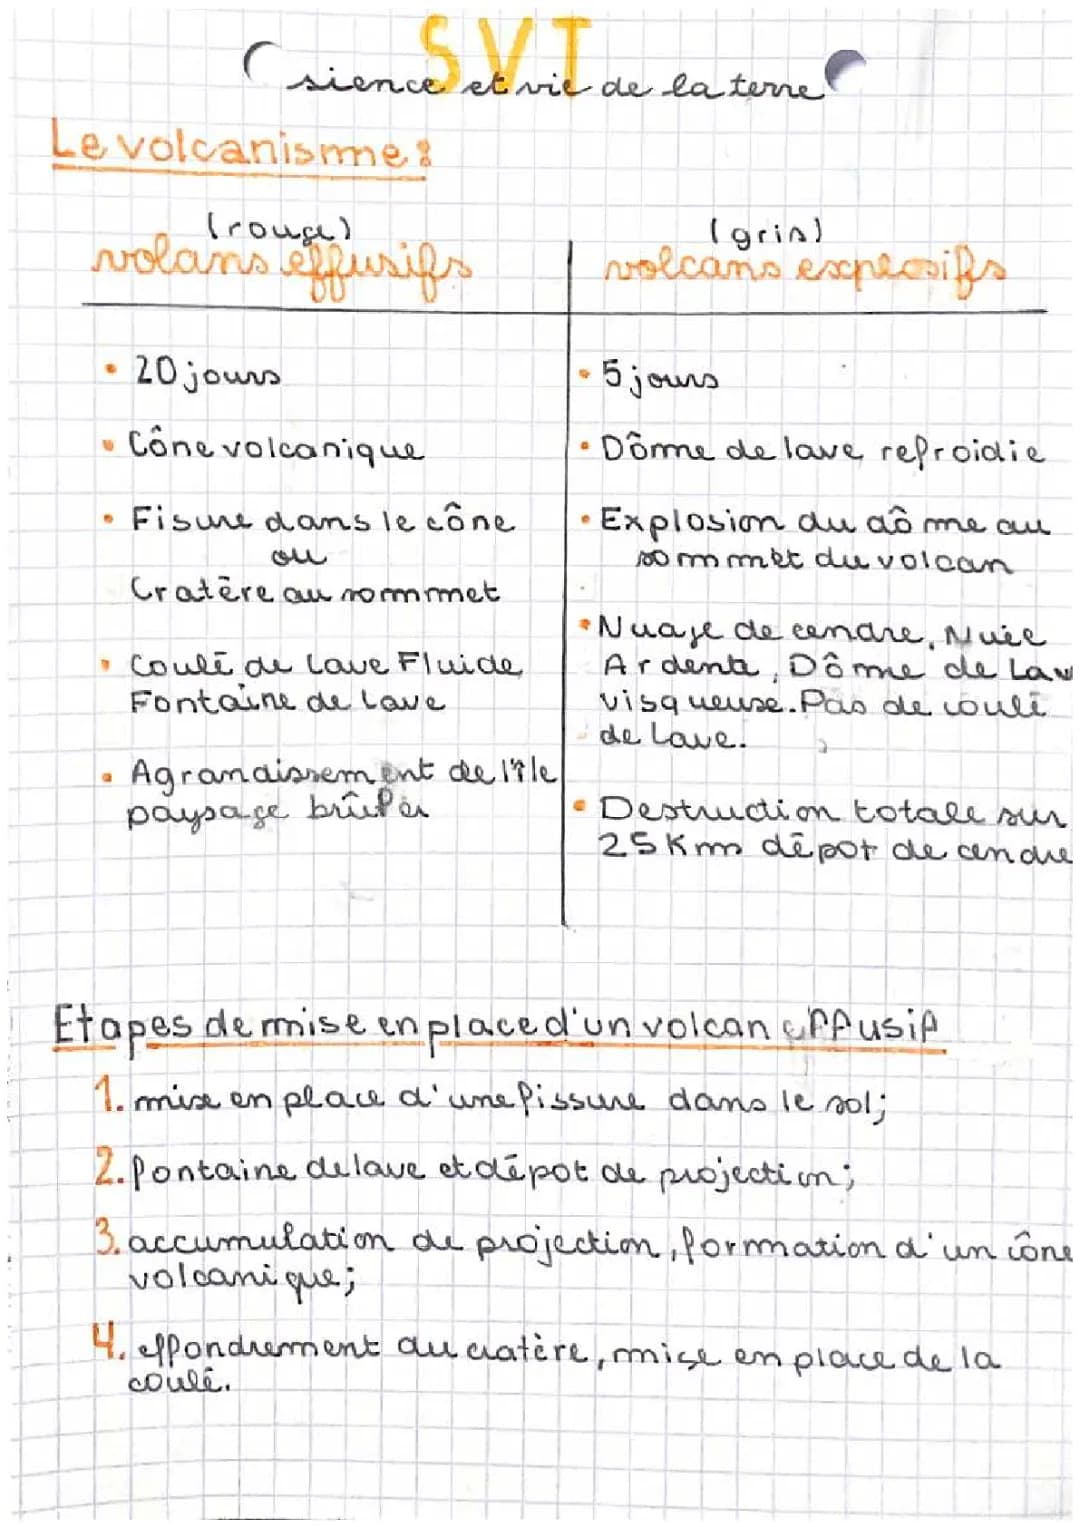 SVT
sience et vie de la terre
Le volcanisme :
(rouge)
volans effusifs
(gris)
volcans explosifs
• 20 jours
• Cône volcanique
• Fisure dans le cône
ou
Cratère au sommet
• Coulé de Lave Fluide,
Fontaine de Lave
• Agrandissement de l'île
paysage brûler
• 5 jours
• Dôme de lave refroidie
• Explosion du dôme au
sommet du volcan
• Nuaje de cendre, Nuée
Ardente, Dôme de Lav
visqueuse. Pas de coulé
de Lave.
• Destruction totale sur
25 Km dépot de cendre
Etapes de mise en place d'un volcan effusif
1. mise en place d'une fissure dans le sol;
2. fontaine de lave et dépot de projection;
3. accumulation de projection, formation d'un cône
volcanique;
4. effondrement du cratère, mise en place de la
coulé.